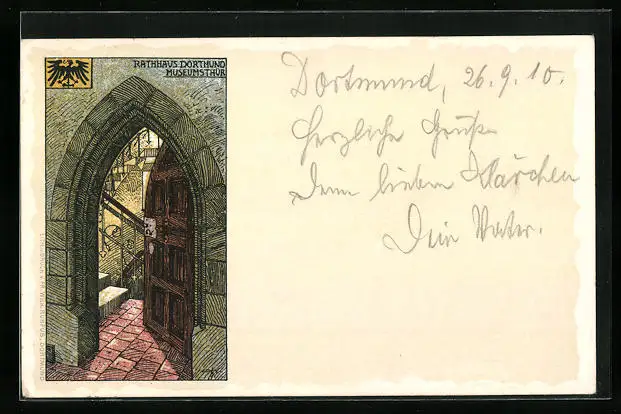 RATHHAUS DORTMUND
MUSEUMSTHÜR
Dortmund, 26.9.10.
Herzliche Grüße
Deinem lieben Klärchen
Dein Vater.